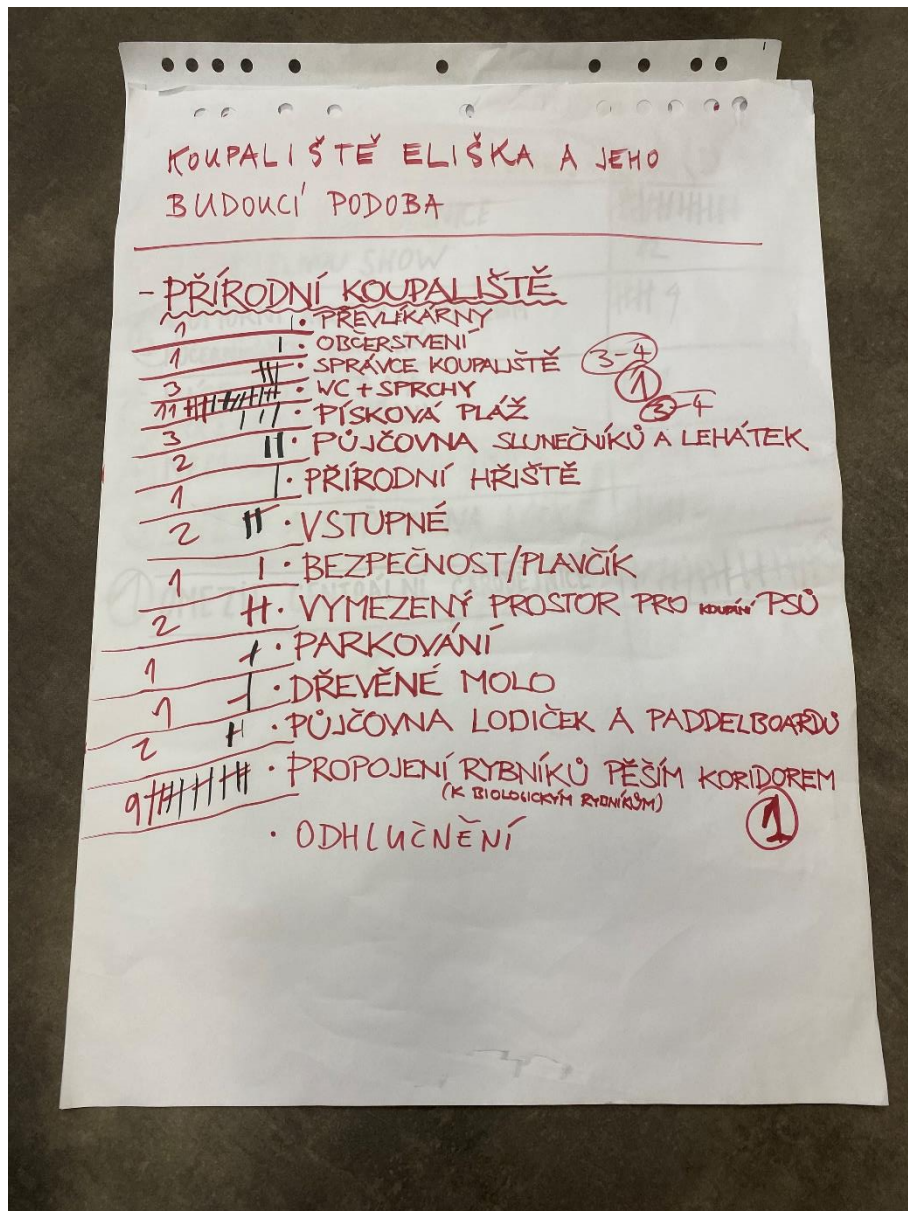 KOUPALIŠTĚ ELIŠKA A JEHO
BUDOUCÍ PODOBA
- PŘÍRODNÍ KOUPALIŠTĚ
1 | • PŘEVLÉKÁRNY
1 | • OBČERSTVENÍ
3 ||| • SPRÁVCE KOUPALIŠTĚ 3-4
11 ||||||||||| • WC + SPRCHY 1
3 ||| • PÍSKOVÁ PLÁŽ 3-4
2 || • PŮJČOVNA SLUNEČNÍKŮ A LEHÁTEK
1 | • PŘÍRODNÍ HŘIŠTĚ
2 || • VSTUPNÉ
1 | • BEZPEČNOST/PLAVČÍK
2 || • VYMEZENÝ PROSTOR PRO KOUPÁNÍ PSŮ
1 | • PARKOVÁNÍ
1 | • DŘEVĚNÉ MOLO
2 || • PŮJČOVNA LODIČEK A PADDELBOARDŮ
9 ||||||||| • PROPOJENÍ RYBNÍKŮ PĚŠÍM KORIDOREM
(K BIOLOGICKÝM RYBNÍKŮM) 1
• ODHLUČNĚNÍ